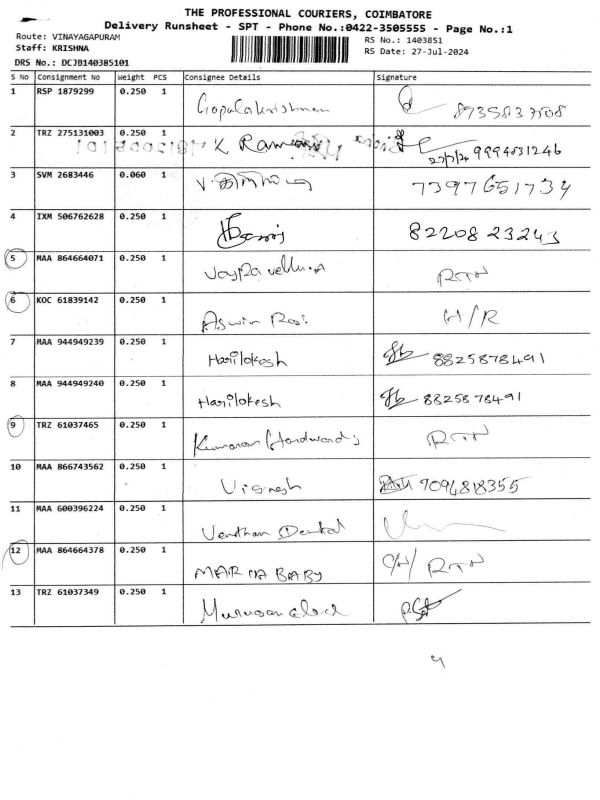 THE PROFESSIONAL COURIERS, COIMBATORE
Delivery Runsheet - SPT - Phone No.:0422-3505555 - Page No.:1
Route: VINAYAGAPURAM
Staff: KRISHNA
DRS No.: DCJB140385101
RS No.: 1403851
RS Date: 27-Jul-2024
S No Consignment No Weight PCS Consignee Details Signature
1 RSP 1879299 0.250 1 Gopalakrishnan 8735837508
2 TRZ 275131003 0.250 1 K Raman 27/7/24 9994831246
3 SVM 2683446 0.060 1 7397651734
4 IXM 506762628 0.250 1 82208 23243
5 MAA 864664071 0.250 1 RTN
6 KOC 61839142 0.250 1 Aswin Rasi H/R
7 MAA 944949239 0.250 1 Harilokesh 8825878491
8 MAA 944949240 0.250 1 Harilokesh 8825878491
9 TRZ 61037465 0.250 1 Kumaran Hardwards RTN
10 MAA 866743562 0.250 1 Vignesh 7094818355
11 MAA 600396224 0.250 1 Dental
12 MAA 864664378 0.250 1 MARIA BABY RTN
13 TRZ 61037349 0.250 1